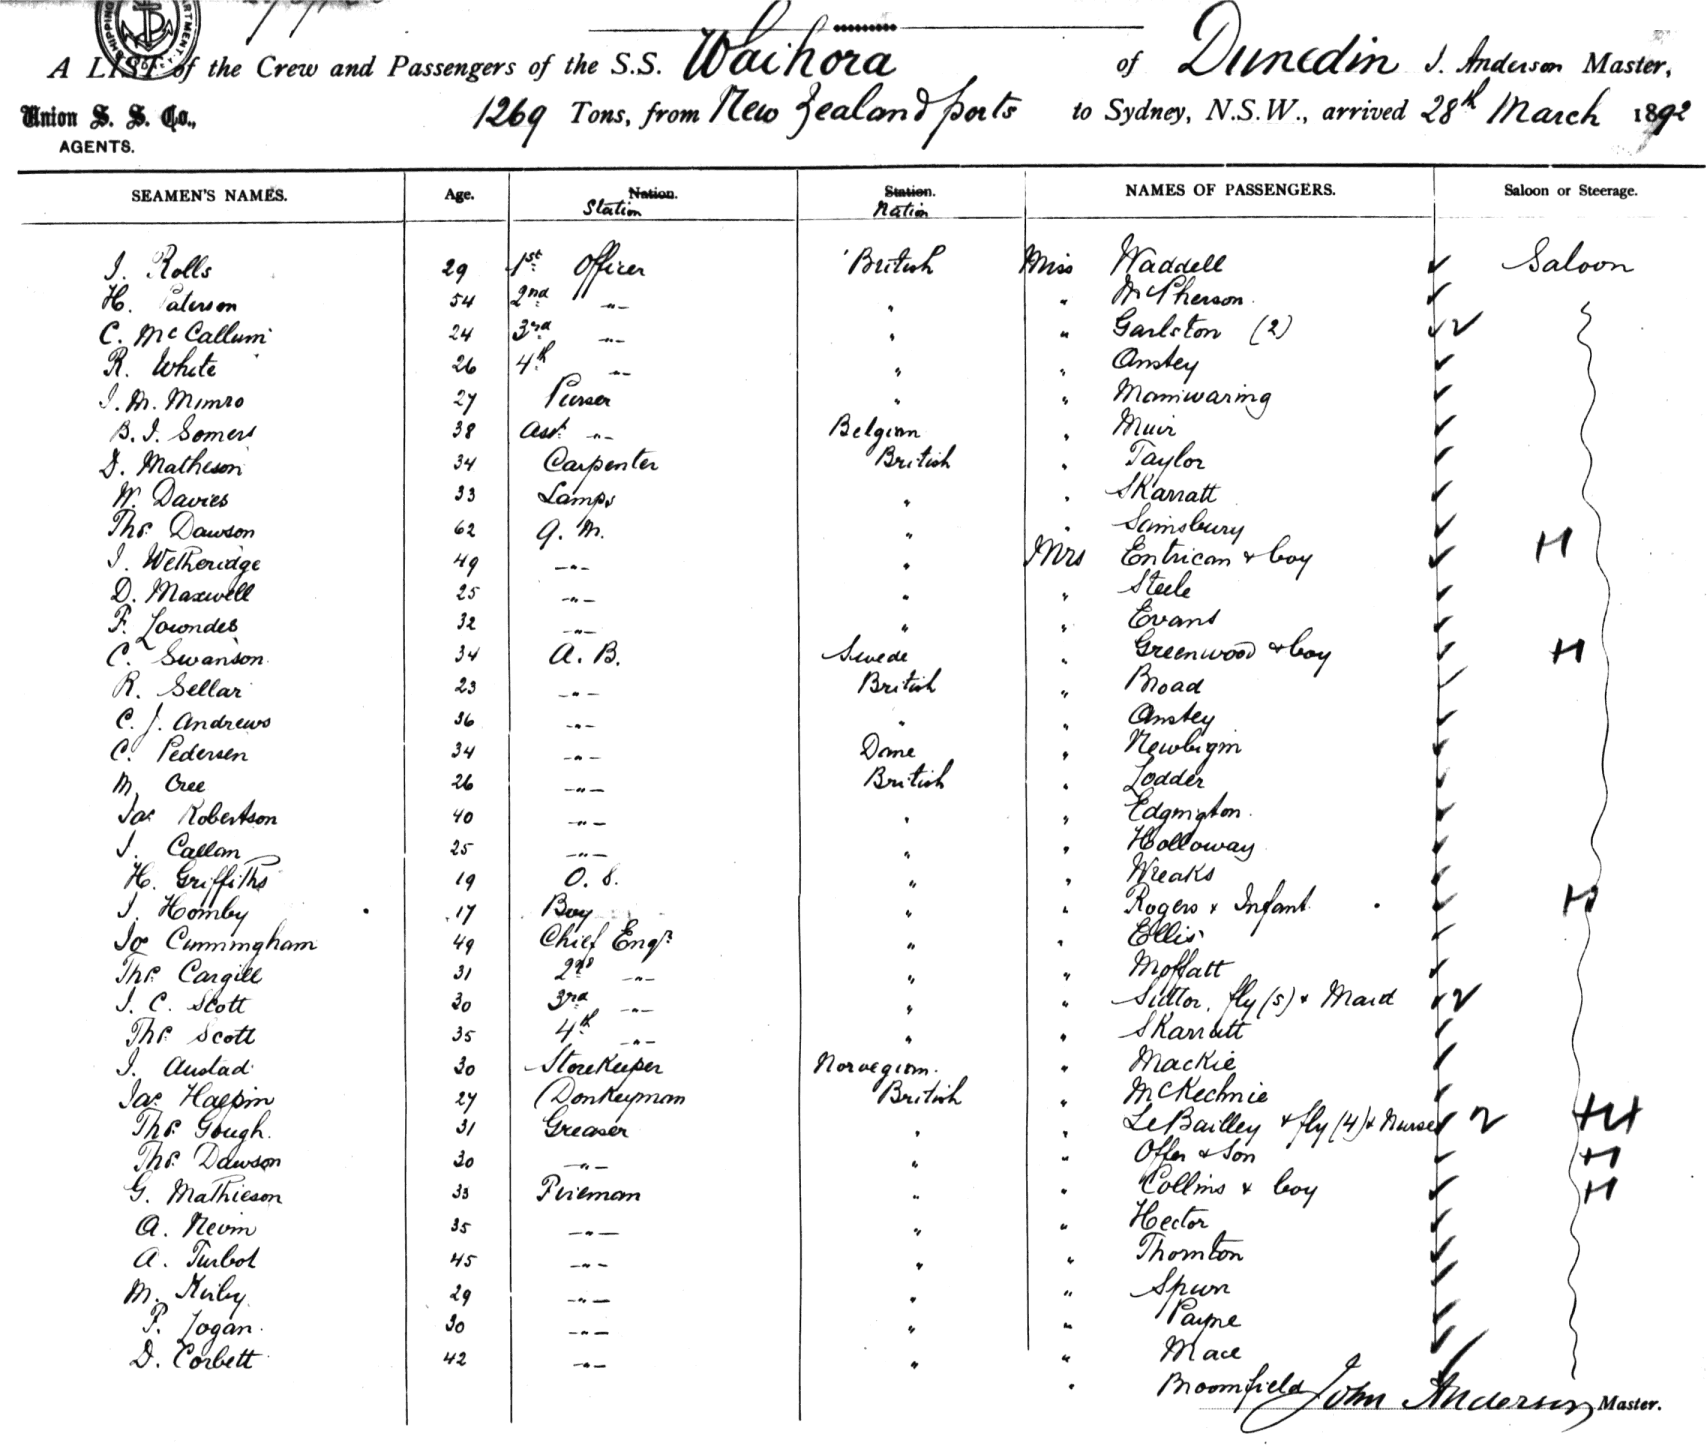 A LIST of the Crew and Passengers of the S.S. Waihora of Dunedin J. Anderson Master,
Union S. S. Co., 1269 Tons, from New Zealand ports to Sydney, N.S.W., arrived 28th March 1892
AGENTS.
SEAMEN'S NAMES. Age. Nation. Station. NAMES OF PASSENGERS. Saloon or Steerage.
Station Nation
J. Rolls 29 1st Officer British Miss Waddell Saloon
H. Paterson 54 2nd -"- " " McPherson
C. McCallum 24 3rd -"- " " Garlston (2)
R. White 26 4th -"- " " Anstey
J. M. Munro 27 Purser " " Maniwaring
B. J. Somers 38 Asst. -"- Belgian " Muir
D. Matheson 34 Carpenter British " Taylor
W. Davies 33 Lamps " " Skarratt
Thos. Dawson 62 Q. M. " " Sainsbury
J. Wetheridge 49 -"- " Mrs Entrican & boy H
D. Maxwell 25 -"- " " Steele
F. Lowndes 32 -"- " " Evans
C. Swanson 34 A. B. Swede " Greenwood & boy H
R. Sellar 23 -"- British " Broad
C. J. Andrews 36 -"- " " Anstey
C. Pedersen 34 -"- Dane " Newbigin
M. Cree 26 -"- British " Lodder
Jas Robertson 40 -"- " " Edgington
J. Callan 25 -"- " " Holloway
H. Griffiths 19 O. S. " " Wreaks
J. Homby 17 Boy " " Rogers & Infant H
Jos Cunningham 49 Chief Engr. " " Ellis
Thos. Cargill 31 2nd -"- " " Moffatt
J. C. Scott 30 3rd -"- " " Suttor, fly (5) & Maid 2
Thos. Scott 35 4th -"- " " Skarratt
J. Austad 30 Storekeeper Norwegian " Mackie
Jas. Halpin 27 Donkeyman British " McKechnie
Thos. Gough 31 Greaser " " LeBailley & fly (4) & Nurse 2 HH
Thos. Dawson 30 -"- " " Offer & Son H
G. Mathieson 33 Fireman " " Collins & boy H
A. Nevin 35 -"- " " Hector
A. Turbot 45 -"- " " Thornton
M. Kirby 29 -"- " " Spurr
P. Logan 30 -"- " " Payne
D. Corbett 42 -"- " " Mace
" Broomfield
John Anderson Master.